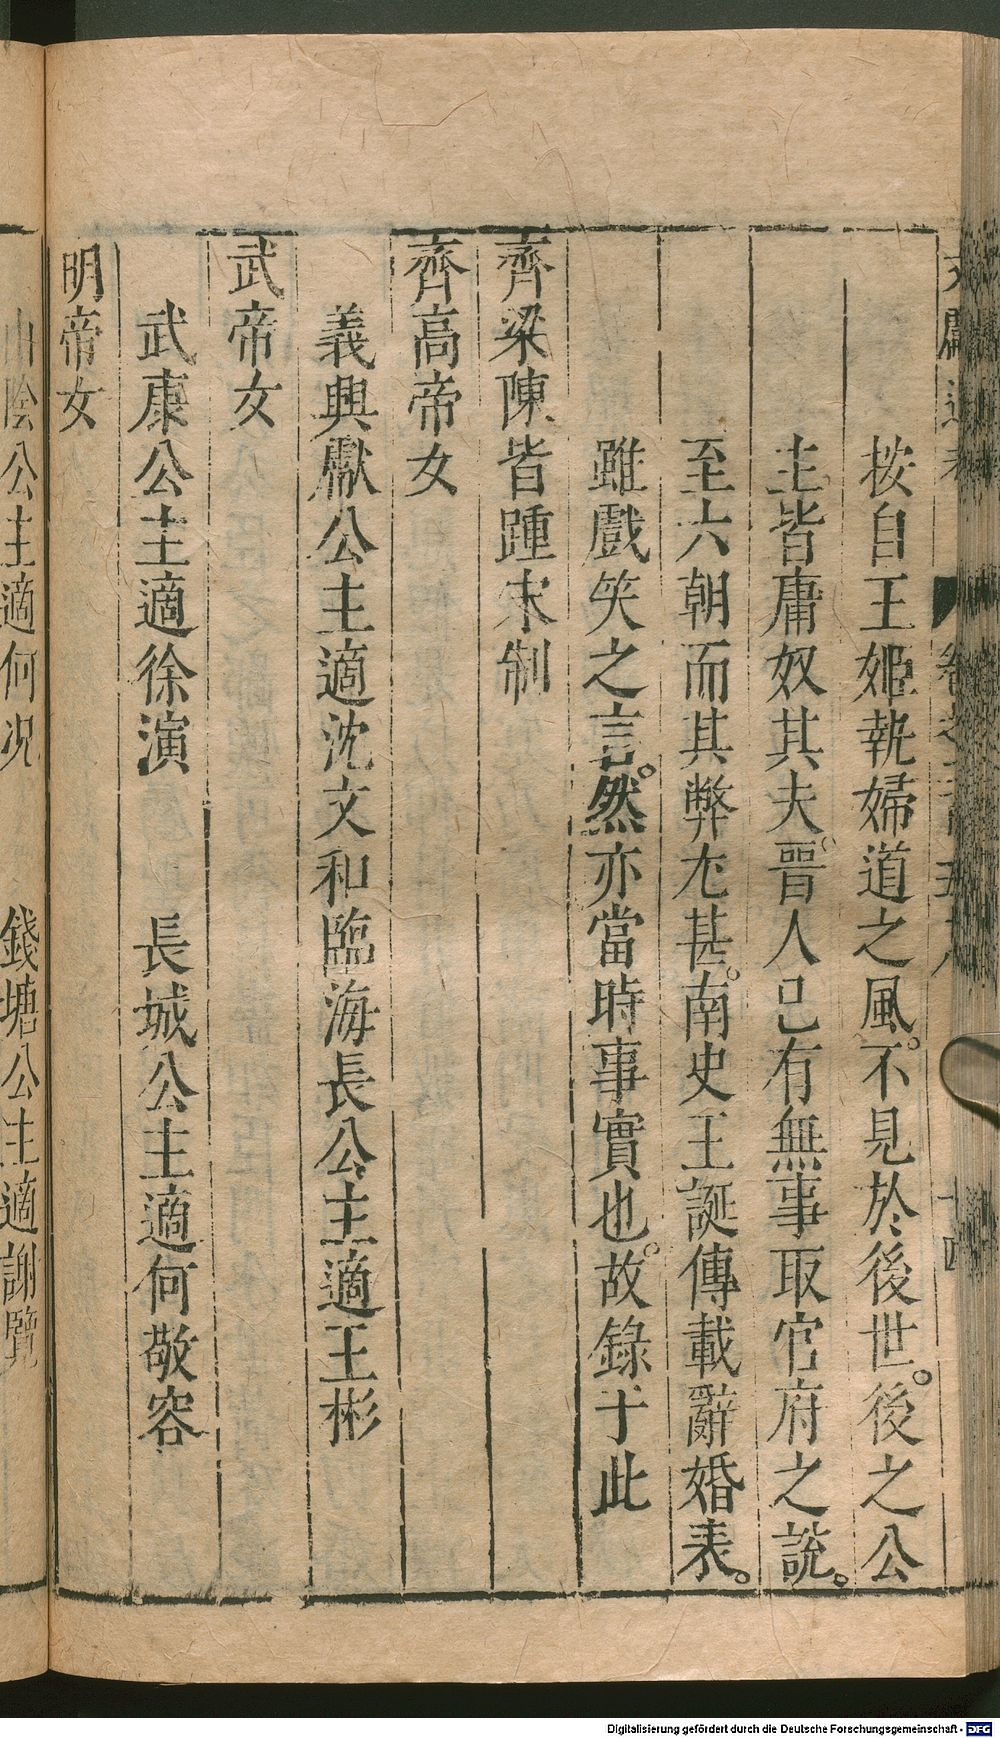 按自王姬執婦道之風。不見於後世。後之公
主皆庸奴其夫。晉人已有無事取官府之說。
至六朝而其弊尤甚。南史王誕傳載辭婚表。
雖戲笑之言。然亦當時事實也。故錄于此
齊梁陳皆踵宋制
齊高帝女
義興獻公主適沈文和臨海長公主適王彬
武帝女
武康公主適徐演　長城公主適何敬容
明帝女
山陰公主適何況　錢塘公主適謝覽
Digitalisierung gefördert durch die Deutsche Forschungsgemeinschaft - DFG